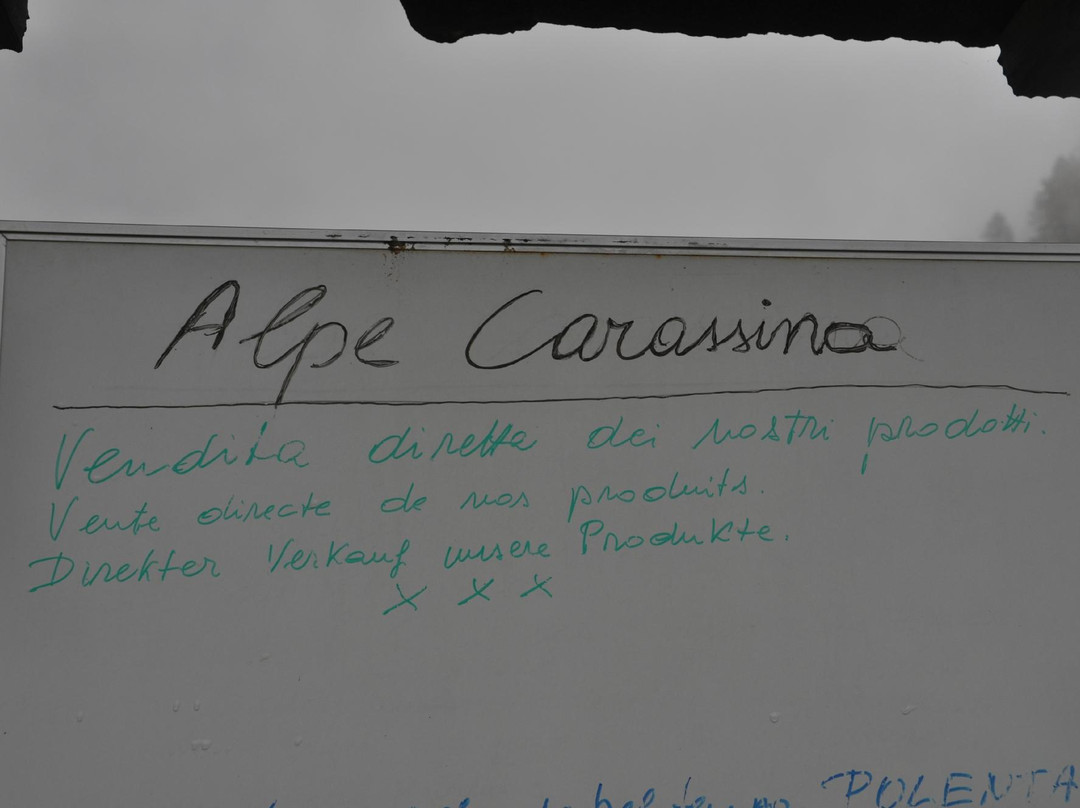 Alpe Carassina
Vendita diretta dei nostri prodotti.
Vente directe de nos produits.
Direkter Verkauf unsere Produkte.
x x x
POLENTA